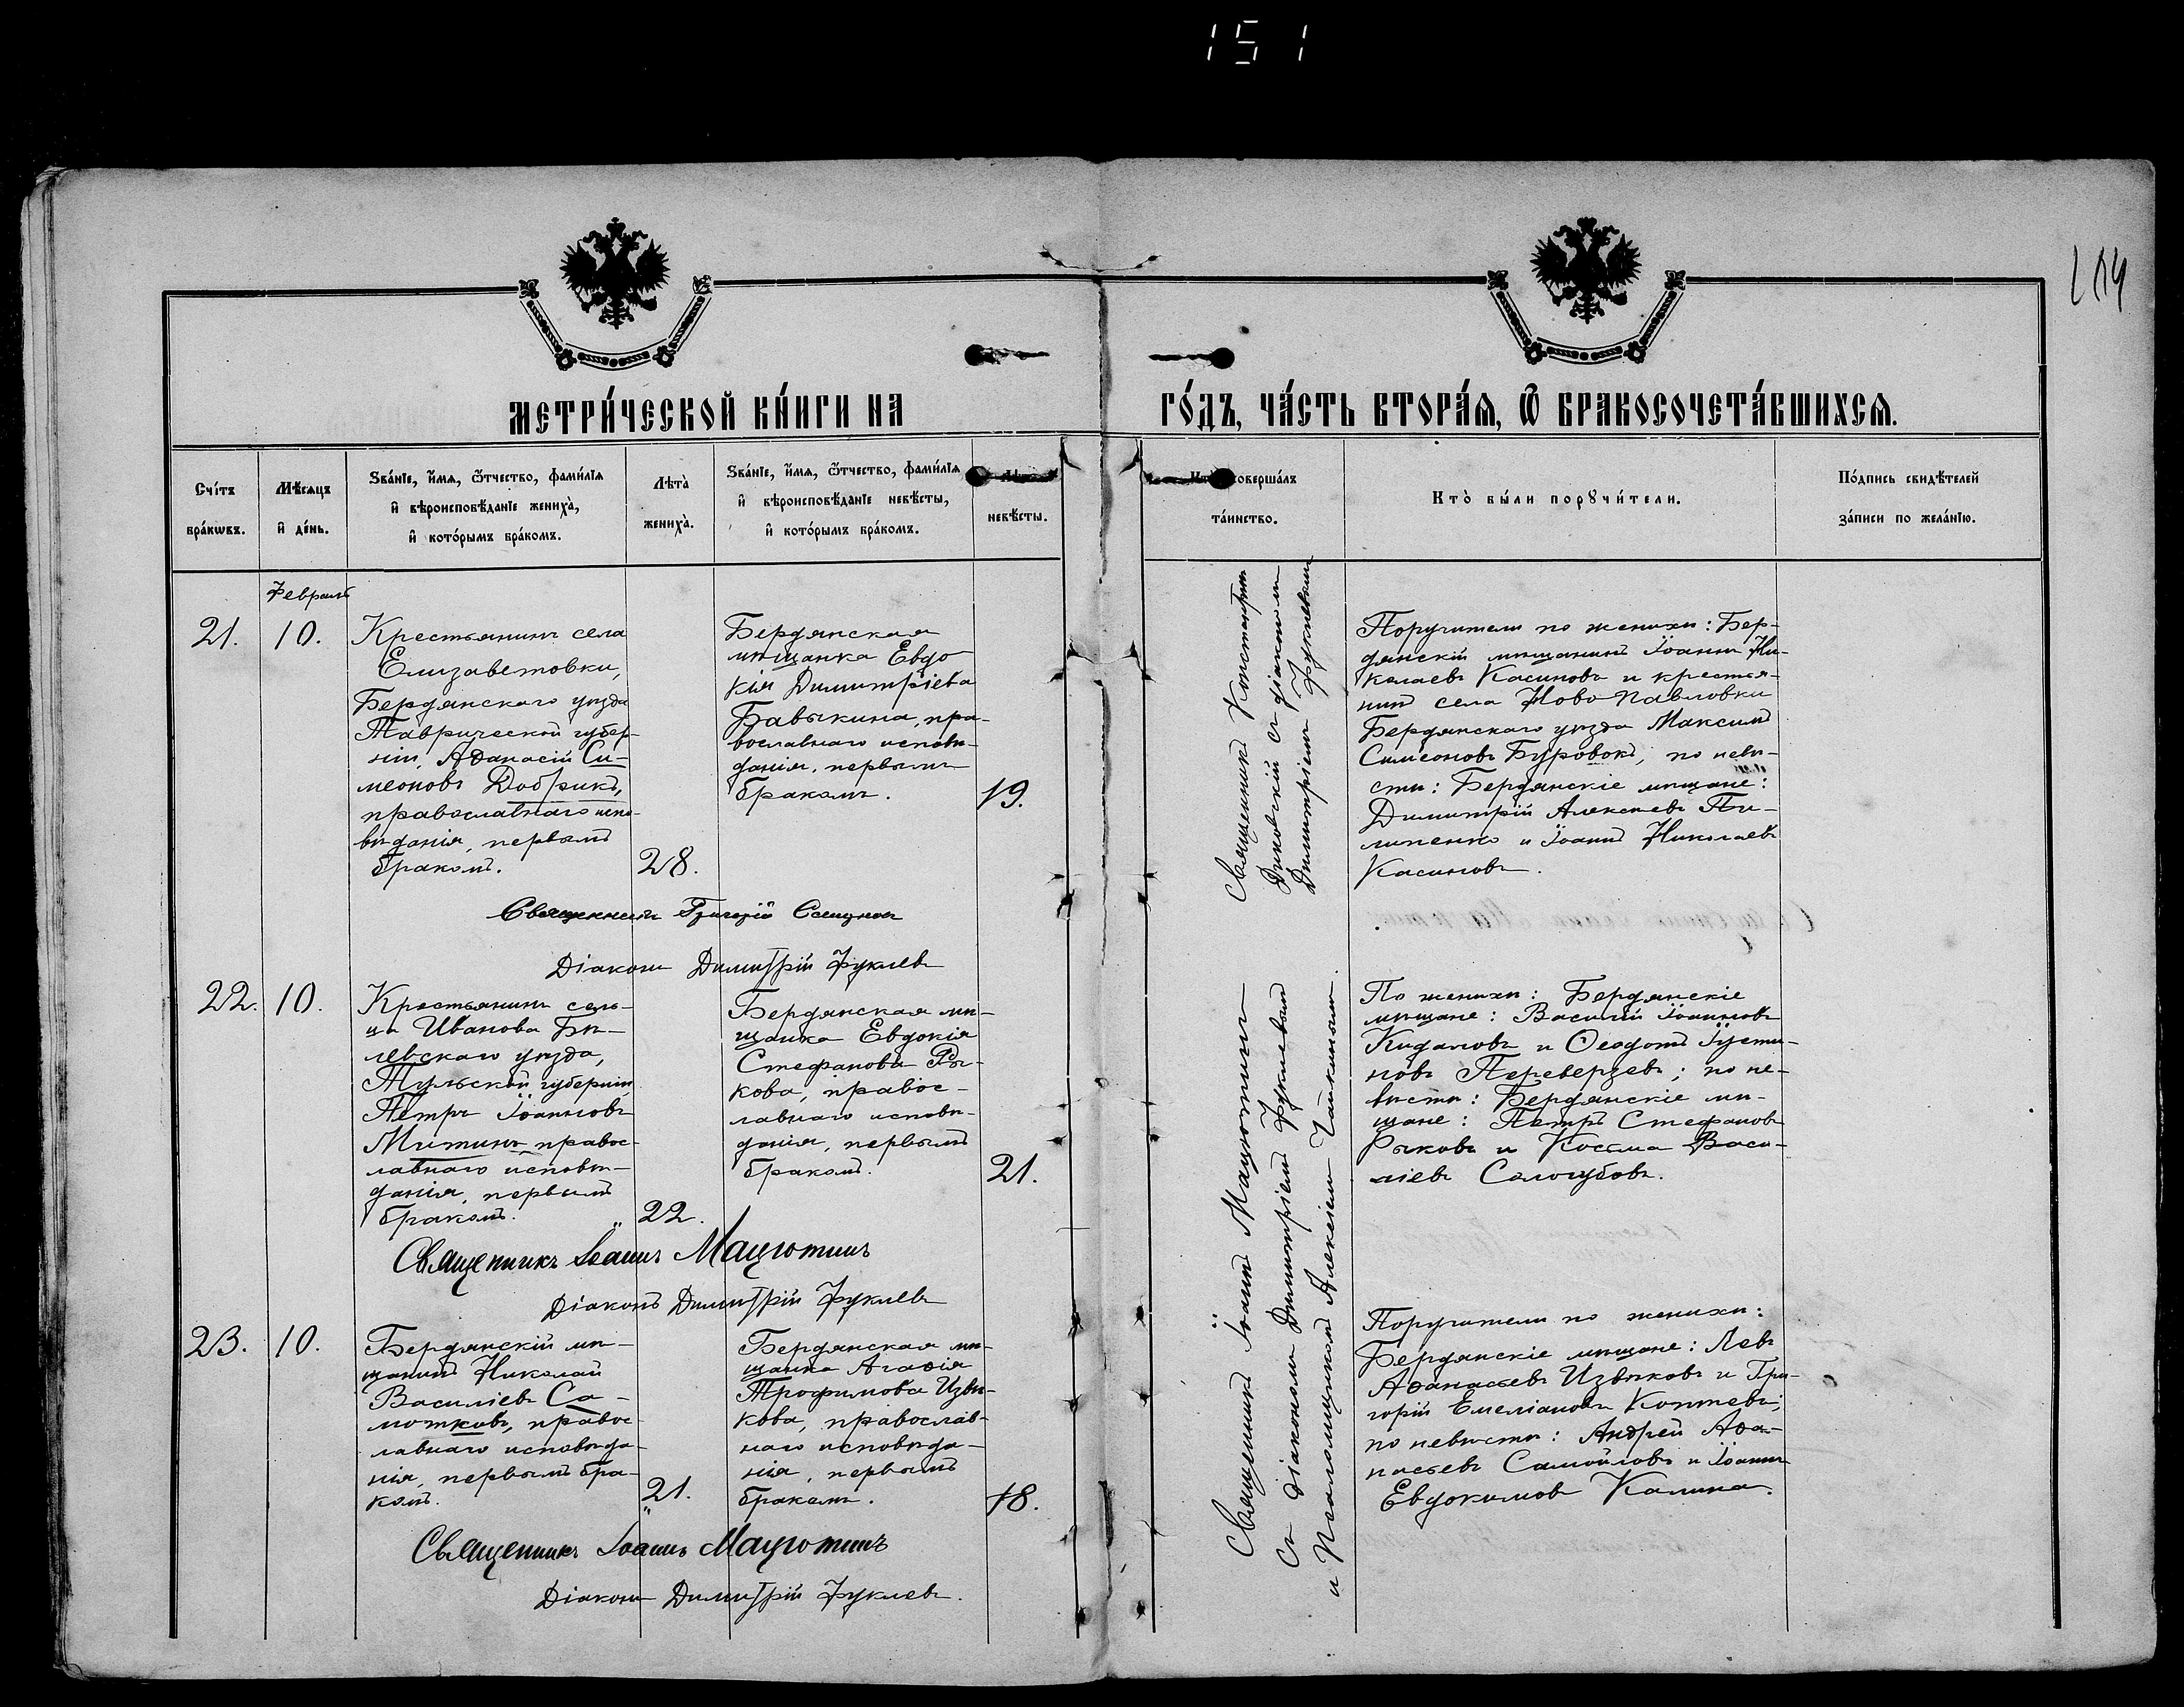 151
104
МЕТРИ́ЧЕСКОЙ КНИ́ГИ НА ГО́ДЪ, ЧА́СТЬ ВТОРА́Я, Ѽ БРАКОСОЧЕТА́ВШИХСЯ.
Сче́тъ бра́кѡвъ.
Мѣ́сяцъ и҆ де́нь.
Ѕва́нїе, и҆́мя, ѻ҆́тчество, фами́лїя и҆ вѣроисповѣ́данїе жениха̀, и҆ кото́рымъ бра́комъ.
Лѣ́та жениха̀.
Ѕва́нїе, и҆́мя, ѻ҆́тчество, фами́лїя и҆ вѣроисповѣ́данїе невѣ́сты, и҆ кото́рымъ бра́комъ.
невѣ́сты.
соверша́лъ та́инство.
Кто̀ бы́ли порꙋчи́тели.
По́дпись свидѣ́телей за́писи по жела́нїю.
Февраль
21.
10.
Крестьянинъ села
Елизаветовки,
Бердянскаго уѣзда
Таврической губер-
ніи, Аѳанасій Си-
меоновъ Добрикъ,
православнаго испо-
вѣданія, первымъ
бракомъ.
28.
Бердянская
мѣщанка Евдо
кія Димитріева
Бавыкина, пра-
вославнаго исповѣ-
данія, первымъ
бракомъ.
19.
Священникъ Константинъ
Диковскій съ діакономъ
Димитріемъ Фуклевымъ
Поручители по женихѣ: Бер-
дянскій мѣщанинъ Іоаннъ Ни-
колаевъ Касиновъ и крестья-
нинъ села Ново-Павловки
Бердянскаго уѣзда Максимъ
Симеоновъ Буровокъ, по невѣ-
стѣ: Бердянскіе мѣщане:
Димитрій Алексѣевъ Пи-
липенко и Іоаннъ Николаевъ
Касиновъ.
Священникъ Григорій
Діаконъ Димитрій Фуклевъ
22.
10.
Крестьянинъ сель-
ца Иванова Бѣ-
левскаго уѣзда,
Тульской губерніи,
Петръ Іоанновъ
Митинъ, правос-
лавнаго исповѣ-
данія, первымъ
бракомъ.
22.
Бердянская мѣ-
щанка Евдокія
Стефанова Ры-
кова, правос-
лавнаго исповѣ-
данія, первымъ
бракомъ.
21.
Священникъ Іоаннъ Мацютинъ
Съ діакономъ Димитріемъ Фуклевымъ
и Псаломщикомъ Алексіемъ Чайкинымъ.
По женихѣ: Бердянскіе
мѣщане: Василій Іоанновъ
Кидаловъ и Ѳеодотъ Іусти-
новъ Переверзевъ; по не-
вѣстѣ: Бердянскіе мѣ-
щане: Петръ Стефановъ
Рыковъ и Косьма Васи-
ліевъ Сологубовъ.
Священникъ Іоаннъ Мацютинъ
Діаконъ Димитрій Фуклевъ
23.
10.
Бердянскій мѣ-
щанинъ Николай
Василіевъ Са-
мотковъ, правос-
лавнаго исповѣда-
нія, первымъ бра-
комъ.
21.
Бердянская мѣ-
щанка Агаѳія
Трофимова Извѣ-
кова, православ-
наго исповѣда-
нія, первымъ
бракомъ.
18.
Поручители по женихѣ:
Бердянскіе мѣщане: Левъ
Аѳанасьевъ Извѣковъ и Гри-
горій Емеліановъ Коптевъ;
по невѣстѣ: Андрей Аѳа-
насьевъ Самойловъ и Іоаннъ
Евдокимовъ Калина.
Священникъ Іоаннъ Мацютинъ
Діаконъ Димитрій Фуклевъ.